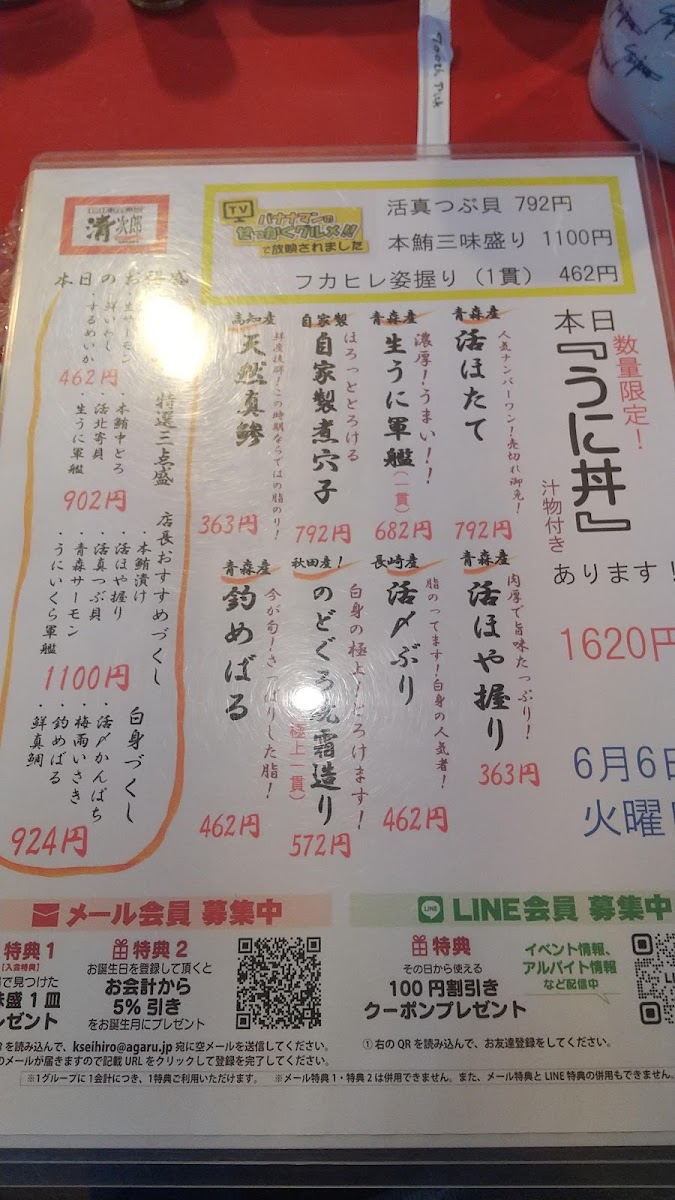 Tooth Pick
清次郎
TV
バナナマンの
せっかくグルメ!!
で放映されました
活真つぶ貝 792円
本鮪三味盛り 1100円
フカヒレ姿握り（1貫） 462円
本日
数量限定！
『うに丼』
汁物付き
あります！
1620円
6月6日
火曜日
青森産
活ほたて
人気ナンバーワン！売切れ御免！
792円
青森産
生うに軍艦（一貫）
濃厚！うまい！！
682円
自家製
自家製煮穴子
ほろっととろける
792円
高知産
天然真鯵
鮮度抜群！この時期ならではの脂のり！
363円
青森産
活ほや握り
肉厚で旨味たっぷり！
363円
長崎産
活〆ぶり
脂のってます！白身の人気者！
462円
秋田産！
のどぐろ焼霜造り
白身の極上！とろけます！
極上一貫）
572円
青森産
釣めばる
今が旬！さっぱりした脂！
462円
本日のお
・鮮いわし
・するめいか
462円
特選三点盛
・本鮪中とろ
・活北寄貝
・生うに軍艦
902円
店長おすすめづくし
・本鮪漬け
・活ほや握り
・活真つぶ貝
・青森サーモン
・うにいくら軍艦
1100円
白身づくし
・活〆かんぱち
・梅雨いさき
・釣めばる
・鮮真鯛
924円
メール会員 募集中
特典1
【入会特典】
で見つけた
味盛1皿
レゼント
特典2
お誕生日を登録して頂くと
お会計から
5%引き
をお誕生月にプレゼント
Rを読み込んで、kseihiro@agaru.jp 宛に空メールを送信してください。
のメールが届きますので記載URLをクリックして登録を完了してください。
LINE
LINE会員 募集中
特典
その日から使える
100円割引き
クーポンプレゼント
イベント情報、
アルバイト情報
など配信中
①右のQRを読み込んで、お友達登録をしてください。
※1グループに1会計につき、1特典ご利用いただけます。 ※メール特典1・特典2は併用できません。また、メール特典とLINE特典の併用もできません。